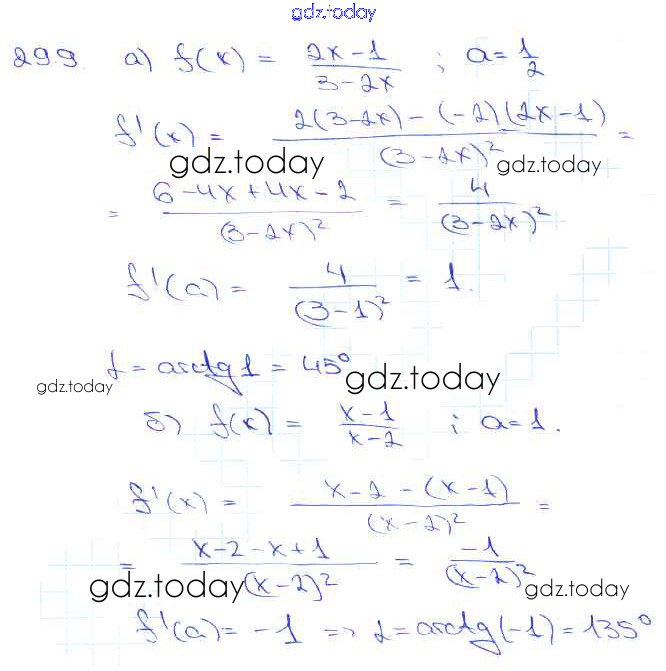 gdz.today
29.9. а) f(x) = (2x-1)/(3-2x) ; a = 1/2
f'(x) = (2(3-2x) - (-2)(2x-1))/(3-2x)² =
gdz.today gdz.today
= (6-4x+4x-2)/(3-2x)² = 4/(3-2x)²
f'(a) = 4/(3-1)² = 1.
α = arctg 1 = 45°
gdz.today gdz.today
б) f(x) = (x-1)/(x-2) ; a = 1.
f'(x) = (x-2-(x-1))/(x-2)² =
= (x-2-x+1)/(x-2)² = -1/(x-2)²
gdz.today gdz.today
f'(a) = -1 => α = arctg(-1) = 135°